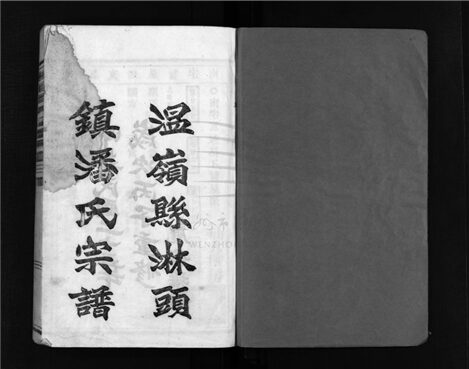 溫嶺縣淋頭
鎮潘氏宗譜
WENZHOU